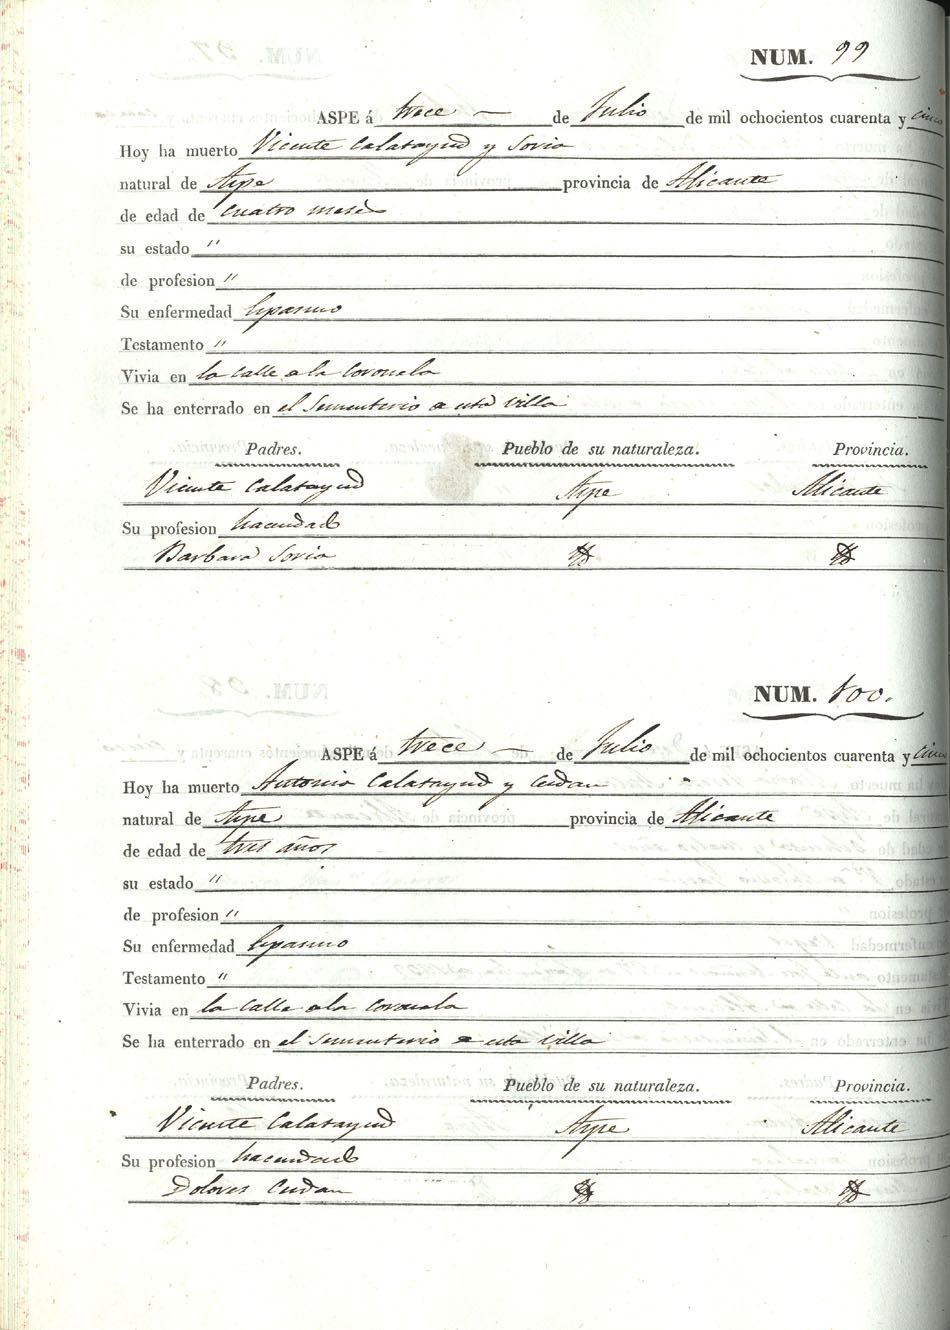 NUM. 99
ASPE á trece de Julio de mil ochocientos cuarenta y cinco
Hoy ha muerto Vicente Calatayud y Soria
natural de Aspe provincia de Alicante
de edad de cuatro meses
su estado "
de profesion "
Su enfermedad Espasmo
Testamento "
Vivia en la calle a la Coronela
Se ha enterrado en el Sementerio a esta villa
Padres. Pueblo de su naturaleza. Provincia.
Vicente Calatayud Aspe Alicante
Su profesion hacendado
Barbara Soria
NUM. 100.
ASPE á trece de Julio de mil ochocientos cuarenta y cinco
Hoy ha muerto Antonio Calatayud y
natural de Aspe provincia de Alicante
de edad de tres años
su estado "
de profesion "
Su enfermedad Espasmo
Testamento "
Vivia en la Calle a la Coronela
Se ha enterrado en el Sementerio a esta villa
Padres. Pueblo de su naturaleza. Provincia.
Vicente Calatayud Aspe Alicante
Su profesion hacendado
Dolores